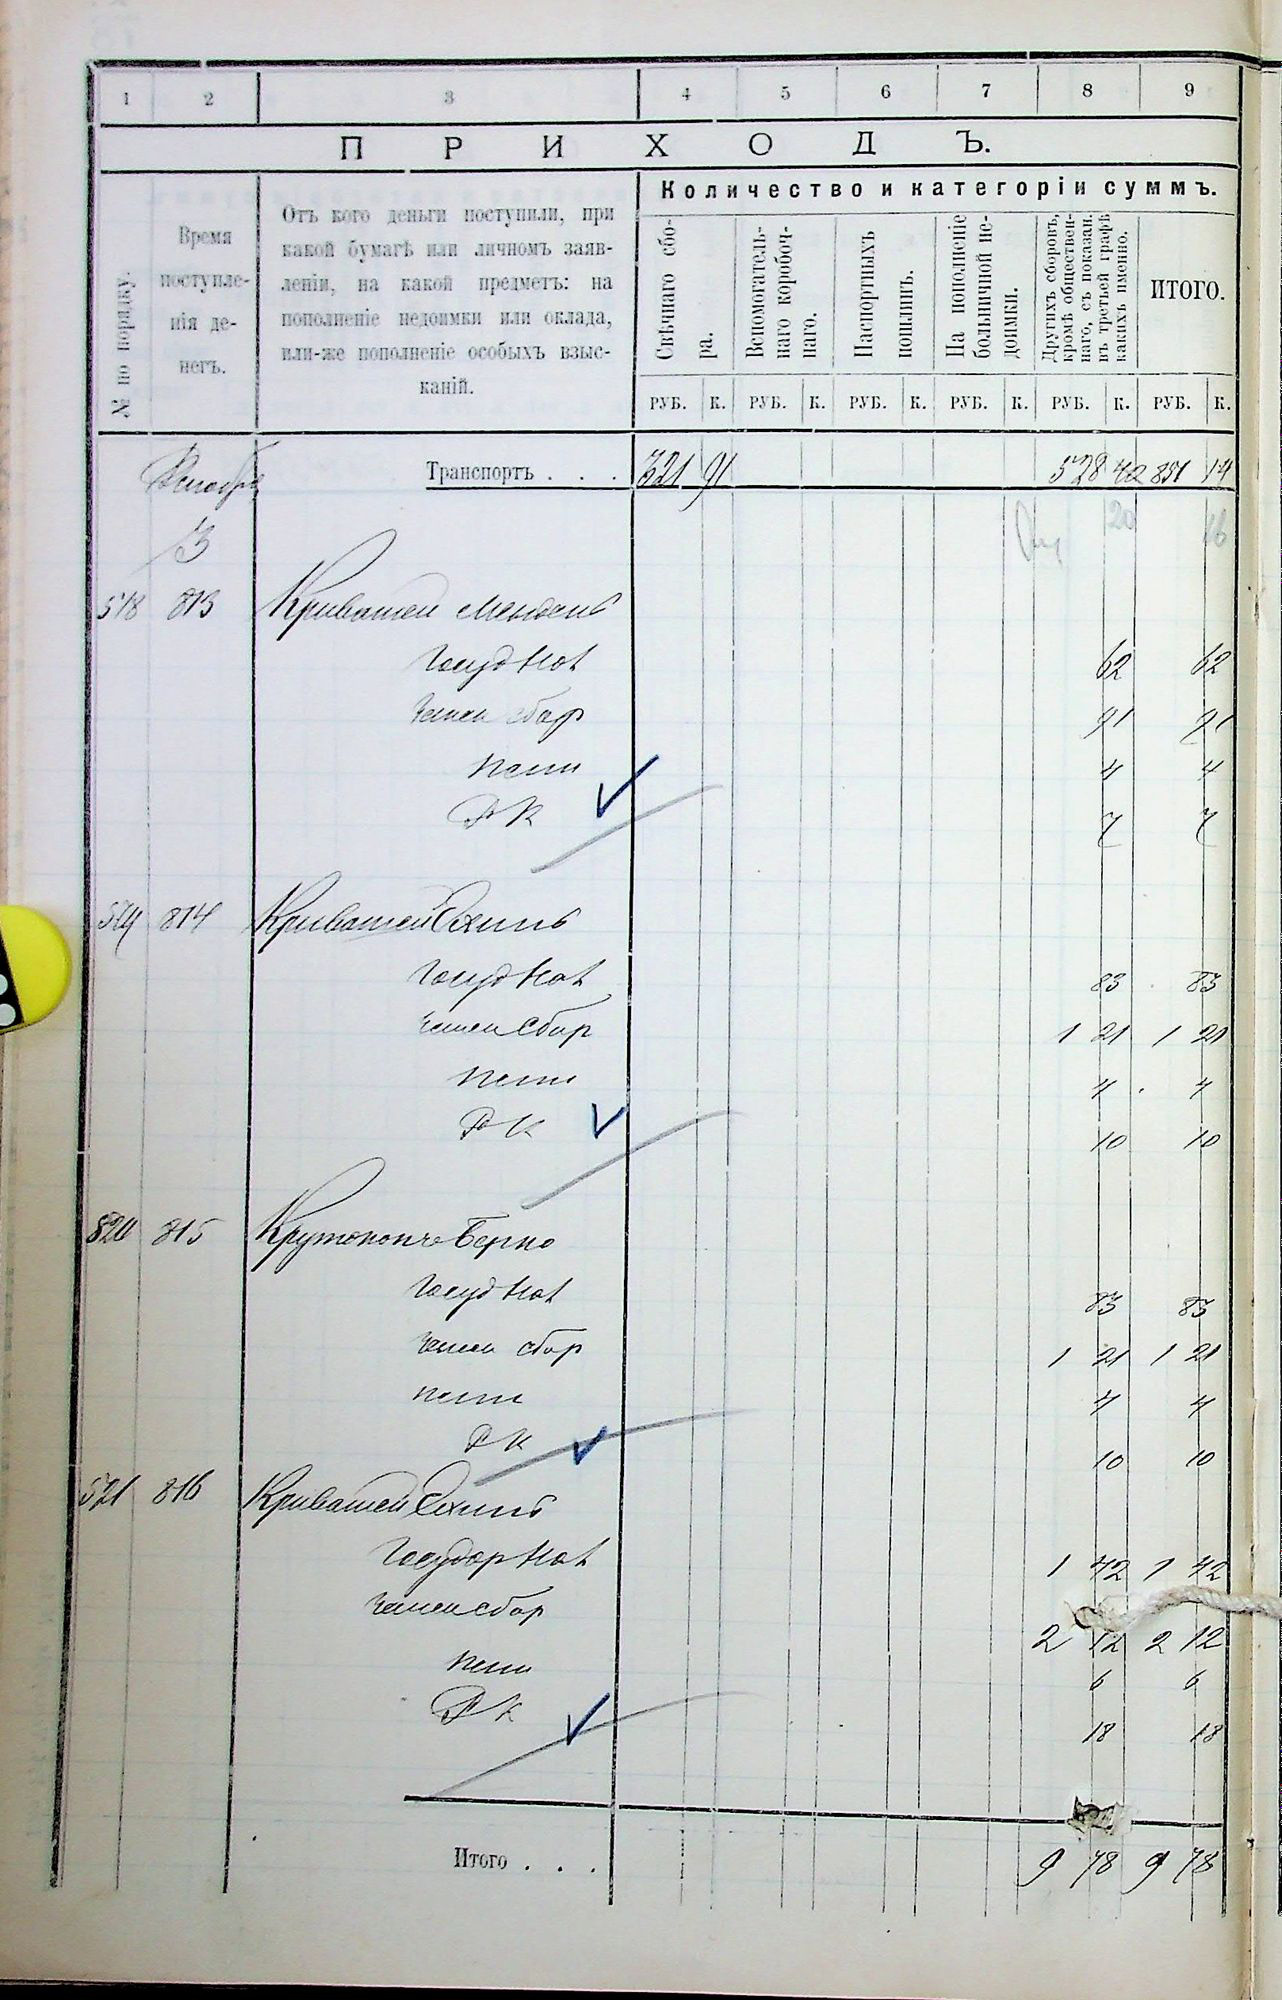 1 2 3 4 5 6 7 8 9
ПРИХОДЪ.
№ по порядку.
Время поступле-
нія де-
негъ.
Отъ кого деньги поступили, при
какой бумагѣ или личномъ заяв-
леніи, на какой предметъ: на
пополненіе недоимки или оклада,
или-же пополненіе особыхъ взыс-
каній.
Количество и категоріи суммъ.
Свѣчнаго сбо-
ра.
Вспомогатель-
наго коробоч-
наго.
Паспортныхъ
пошлинъ.
На пополненіе
больничной не-
доимки.
Другихъ сборовъ,
кромѣ обществен-
наго, съ показан.
въ третьей графѣ
какихъ именно.
ИТОГО.
РУБ. К. РУБ. К. РУБ. К. РУБ. К. РУБ. К. РУБ. К.
Транспортъ . . . 321 91 528 851 14
20 16
3
518 813 Кривошей Мендель
Госуд Нал 62 62
Земск сбор 91 91
Пени 4 4
РК 7 7
519 814 Кривошей
Госуд Нал 83 83
Земск Сбор 1 21 1 21
Пени 4 4
РК 10 10
520 815 Берко
Госуд Нал 83 83
Земск сбор 1 21 1 21
Пени 4 4
РК 10 10
521 816 Кривошей
Государ Нал 1 42 1 42
Земск сбор 2 12 2 12
Пени 6 6
РК 18 18
Итого . . . 9 78 9 78